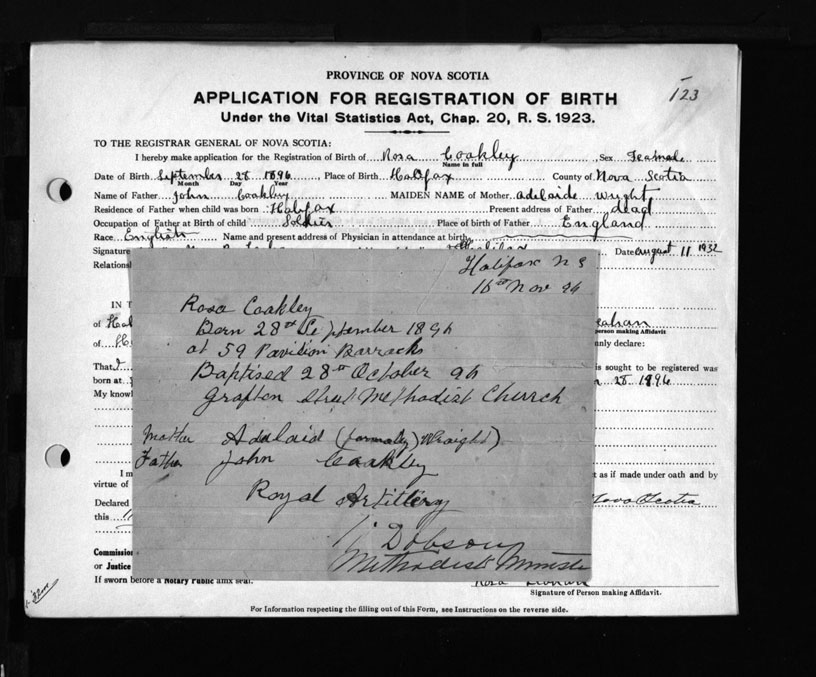 PROVINCE OF NOVA SCOTIA
123
APPLICATION FOR REGISTRATION OF BIRTH
Under the Vital Statistics Act, Chap. 20, R. S. 1923.
TO THE REGISTRAR GENERAL OF NOVA SCOTIA:
I hereby make application for the Registration of Birth of Rosa Coakley Sex Feamale
Name in full
Date of Birth September 28 1896 Place of Birth Halifax County of Nova Scotia
Month Day Year
Name of Father John Coakley MAIDEN NAME of Mother Adelaide Wright
Residence of Father when child was born Halifax Present address of Father dead
Occupation of Father at Birth of child Soldier Place of birth of Father England
Race English Name and present address of Physician in attendance at birth
Signature Halifax Date August 11 1932
Relations
Halifax N S
16th Nov 96
IN T
Rosa Coakley
of Hal
person making Affidavit
Born 28th September 1896
of
nly declare:
at 59 Pavilion Barracks
That I is sought to be registered was
Baptised 28th October 96
born at 28 1896
My know
Grafton Street Methodist Church
Mother Adalaid (formaley Wraight)
Father John Coakley
I m t as if made under oath and by
virtue of
Royal Artillery
Declared Nova Scotia
this
J Dobson
Commission
Methodist Minister
or Justice
If sworn before a Notary Public affix seal.
Rosa
Signature of Person making Affidavit.
For Information respecting the filling out of this Form, see Instructions on the reverse side.